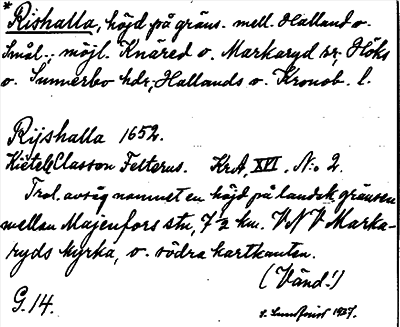 * Rishalla, höjd på gräns. mell. Halland o.
Smål.; möjl. Knäred o. Markaryd sr, Höks
o. Sunnerbo hdr, Hallands o. Kronob. l.
Rijshalla 1652.
Kietell Classon Felterus. KrA, XVI, No 2.
Trol. avsåg namnet en höjd på landsk.gränsen
mellan Majenfors stn, 7½ km. VNV Marka-
ryds kyrka, o. södra kartkanten.
(Vänd!)
G. 14.
1927.